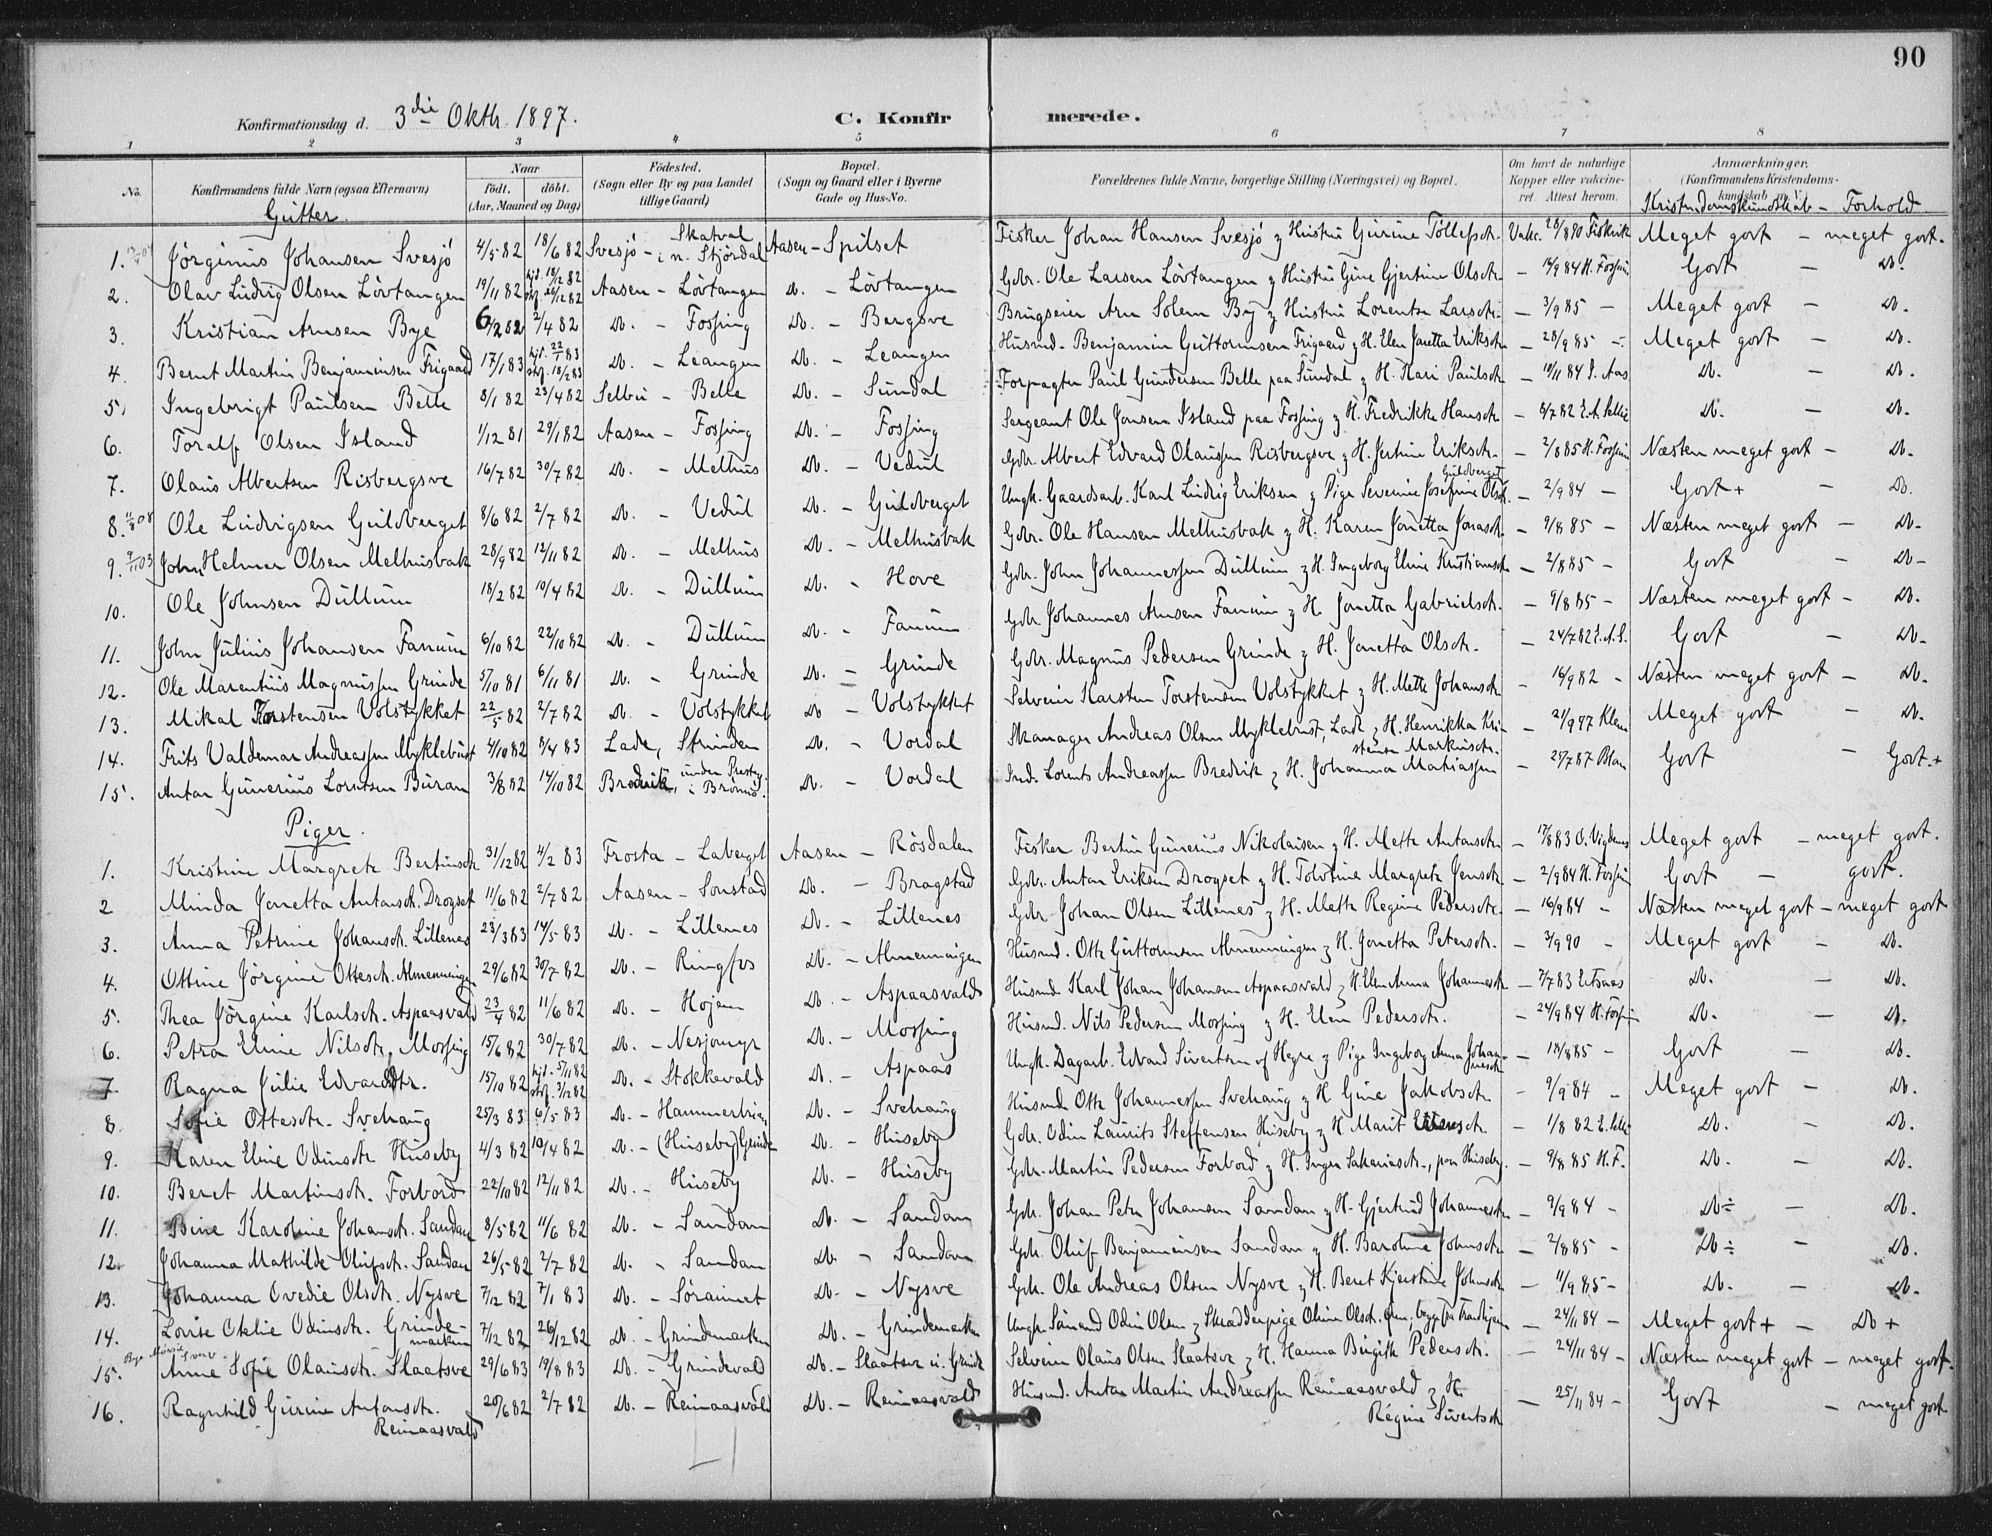 90
Konfirmationsdag d. 3die Oktb. 1897. C. Konfirmerede.
1 2 3 4 5 6 7 8
No. Konfirmandens fulde Navn (ogsaa Efternavn) Naar födt. döbt. (Aar, Maaned og Dag) Födested. (Sogn eller By og paa Landet tillige Gaard) Bopæl. (Sogn og Gaard eller i Byerne Gade og Hus-No. Forældrenes fulde Navne, borgerlige Stilling (Næringsvei) og Bopæl. Om havt de naturlige Kopper eller vakcineret. Attest herom. Anmærkninger. (Konfirmandens Kristendomskundskab o. s. v.)
Kristendomskundskab - Forhold.
Gutter.
1. Jørginus Johansen Svesjö 4/5 82 18/6 82 Svesjö - Skatval i n. Stjördal Aasen - Spilset Fisker Johan Hansen Svesjö & Hustru Gurine Tollefsdtr. Vakc. 28/8 90 Meget godt - meget godt.
2. Olav Ludvig Olsen Lövtangen 19/11 82 hjd. 18/12 82 Aasen - Lövtangen Do. - Lövtangen Gdbr. Ole Larsen Lövtangen & Hustru Gine Gjertine Olsdtr. - 16/9 84 H. Fossing Godt - Do.
3. Kristian Arnsen Bye 6/2 82 2/4 82 Do. - Fossing Do. - Bergsve Brugseier Arn Solem By & Hustru Lorentse Larsdtr. - 3/9 85 - Meget godt - Do.
4. Bernt Martin Benjaminsen Frigaard 17/1 83 hjd. 22/1 83 18/2 83 Do. - Leangen Do. - Leangen Husmd. Benjamin Guttormsen Frigaard & H. Elen Jonetta Eriksdtr. - 28/9 85 - Meget godt - Do.
5. Ingebrigt Paulsen Belle 8/1 82 23/4 82 Selbu - Belle Do. - Sundal Forpagter Paul Gundersen Belle paa Sundal & H. Kari Paulsdtr. - 10/11 84 J. Aas Do. - Do.
6. Toralf Olsen Island 1/12 81 29/1 82 Aasen - Fossing Do. - Fossing Sergeant Ole Jonsen Island paa Fossing & H. Fredrikke Hansdtr. - 8/7 82 Do. - Do.
7. Olaus Albertsen Risbergsve 16/7 82 30/7 82 Do. - Melhus Do. - Vedul Gdbr. Albert Edvard Olaussen Risbergsve & H. Jertine Eriksdtr. - 2/8 85 H. Fossing Næsten meget godt - Do.
8. 11/8 08 Ole Ludvigsen Guldberget 8/6 82 2/7 82 Do. - Vedul Do. - Guldberget Ungk. Gaardsarb. Karl Ludvig Eriksen & Pige Severine Josefine Olsd. Guldberget - 2/9 84 - Godt + - Do.
9. 9/11 03 John Helmer Olsen Melhusbak 28/9 82 12/11 82 Do. - Melhus Do. - Melhusbak Gdbr. Ole Hansen Melhusbak & H. Karen Jonetta Jonasdtr. - 9/8 85 - Næsten meget godt - Do.
10. Ole Johnsen Dullum 18/2 82 10/4 82 Do. - Dullum Do. - Hove Gdbr. John Johannessen Dullum & H. Ingeborg Eline Kristiansdtr. - 2/8 85 - Godt - Do.
11. John Julius Johansen Fanum 6/10 82 22/10 82 Do. - Dullum Do. - Fanum Gdbr. Johannes Arnsen Fanum & H. Jonetta Gabrielsdtr. - 9/8 85 - Næsten meget godt - Do.
12. Ole Marentius Magnussen Grinde 5/10 81 6/11 81 Do. - Grinde Do. - Grinde Gdbr. Magnus Pedersen Grinde & H. Jonetta Olsdtr. - 24/7 82 Godt - Do.
13. Mikal Torstensen Volstykket 22/5 82 2/7 82 Do. - Volstykket Do. - Volstykket Selveier Karsten Torstensen Volstykket & H. Mette Johansdtr. - 16/9 82 - Næsten meget godt - Do.
14. Frits Valdemar Andreassen Myklebust 4/10 82 8/4 83 Lade, Strinden Do. - Vordal Skomager Andreas Olsen Myklebust, Lade & H. Henrikka Kristense Markusdtr. - 21/9 97 Meget godt - Do.
15. Anton Gunerius Lorntsen Buran 3/8 82 14/10 82 Bredrik, under Præstg. i Brönnö. Do. - Vordal Ind. Lorents Andreassen Bredrik & H. Johanna Matiassen - 25/7 87 Godt - Godt +
Piger.
1. Kristine Margrete Bertinsdtr. 31/12 82 4/2 83 Frosta - Laberget Aasen - Rösdalen Fisker Bertin Gunerius Nikolaisen & H. Mette Antonsdtr. - 17/8 83 O. Vigdenes Meget godt - meget godt.
2 Minda Jonetta Antonsdtr. Drogset 11/6 82 2/7 82 Aasen - Sonstad Do. - Bragstad Gdbr. Anton Eriksen Drogset & H. Margrete Jensdtr. - 2/9 84 H. Fossing Godt - godt.
3. Anna Petrine Johansdtr. Lillenes 23/3 83 14/5 83 Do. - Lillenes Do. - Lillenes Gdbr. Johan Olsen Lillenes & H. Mette Regine Pedersdtr. - 16/9 84 - Næsten meget godt - meget godt
4. Ottine Jörgine Ottesdtr. Almenningen 29/6 82 30/7 82 Do. - Ringfos Do. - Almenningen Husmd. Otte Guttormsen Almenningen & H. Jonetta Petersdtr. - 3/9 90 - Meget godt - Do.
5. Thea Jörgine Karlsdtr. Aspaasvald 23/4 82 11/6 82 Do. - Hojem Do. - Aspaasvald Husmd. Karl Johan Johansen Aspaasvald & H. Elen Anna Johannesdtr. - 7/7 83 Do. - Do.
6. Petra Eline Nilsdtr. Mossing 15/6 82 30/7 82 Do. - Nesjomyr Do. - Mossing Husmd. Nils Pedersen Mossing & H. Elen Pedersdtr. - 24/9 84 H. Fossing Do. - Do.
7. Ragna Julie Edvardsdtr. 15/10 82 hjd. 5/11 82 3/12 82 Do. - Stokkevald Do. - Aspaas Ungk. Dagarb. Edvard Sivertsen af Hegre & Pige Ingeborg Anna Johannesdtr - 18/8 85 - Godt - Do.
8. Sofie Ottesdtr. Svehaug 25/3 83 6/5 83 Do. - Hammerbrien Do. - Svehaug Husmd. Otte Johannessen Svehaug & H. Gine Jakobsdtr. - 9/9 84 - Meget godt - Do.
9. Karen Eline Odinsdtr. Huseby 4/3 82 10/4 82 Do. - (Huseby) Grinde Do. - Huseby Gdbr. Odin Laurits Steffensen Huseby & H. Marit - 1/8 82 Do. - Do.
10. Beret Martinsdtr. Forbord 22/10 82 12/11 82 Do. - Huseby Do. - Huseby Gdbr. Martin Pedersen Forbord & H. Inger Sakariasdtr., paa Huseby. - 9/8 85 H. F. Do. - Do.
11. Bine Karoline Johansdtr. Sandan 8/5 82 11/6 82 Do. - Sandan Do. - Sandan Gdbr. Johan Peter Johansen Sandan & H. Gjertrud Johannesdtr - 9/9 84 - Do ÷ - Do.
12. Johanna Mathilde Olufsdtr. Sandan 26/5 82 2/7 82 Do. - Sandan Do. - Sandan Gdbr. Oluf Benjaminsen Sandan & H. Baroline Johnsdtr. - 2/8 85 - Do ÷ - Do.
13. Johanna Ovedie Olsdtr. Nysve 7/12 82 7/1 83 Do. - Söraunet Do. - Nysve Gdbr. Ole Andreas Olsen Nysve & H. Beret Kjerstine Johnsdtr - 11/9 85 - Do. - Do.
14. Lovise Oklie Odinsdtr. Grindemarken 7/12 82 26/12 82 Do. - Grindemarken Do. - Grindemarken Ungk. Sömand Odin Olsen & Skrædderpige Oline Olsdtr. - 24/11 84 - Meget godt + - Do +
15. Anne Sofie Olausdtr. Slaatsve 29/6 83 19/8 83 Do. - Grindevald Do. - Slaatsve u. Grinde Selveier Olaus Olsen Slaatsve & H. Hanna Birgitte Pedersdtr. - 24/11 84 - Næsten meget godt - meget godt.
16. Ragnhild Gurine Antonsdtr. Reinaasvald 20/6 82 2/7 82 Do. - Reinaasvald Do. - Reinaasvald Husmd. Anton Martin Andreassen Reinaasvald & H. Regine Sivertsdtr - 25/11 84 - Godt - meget godt